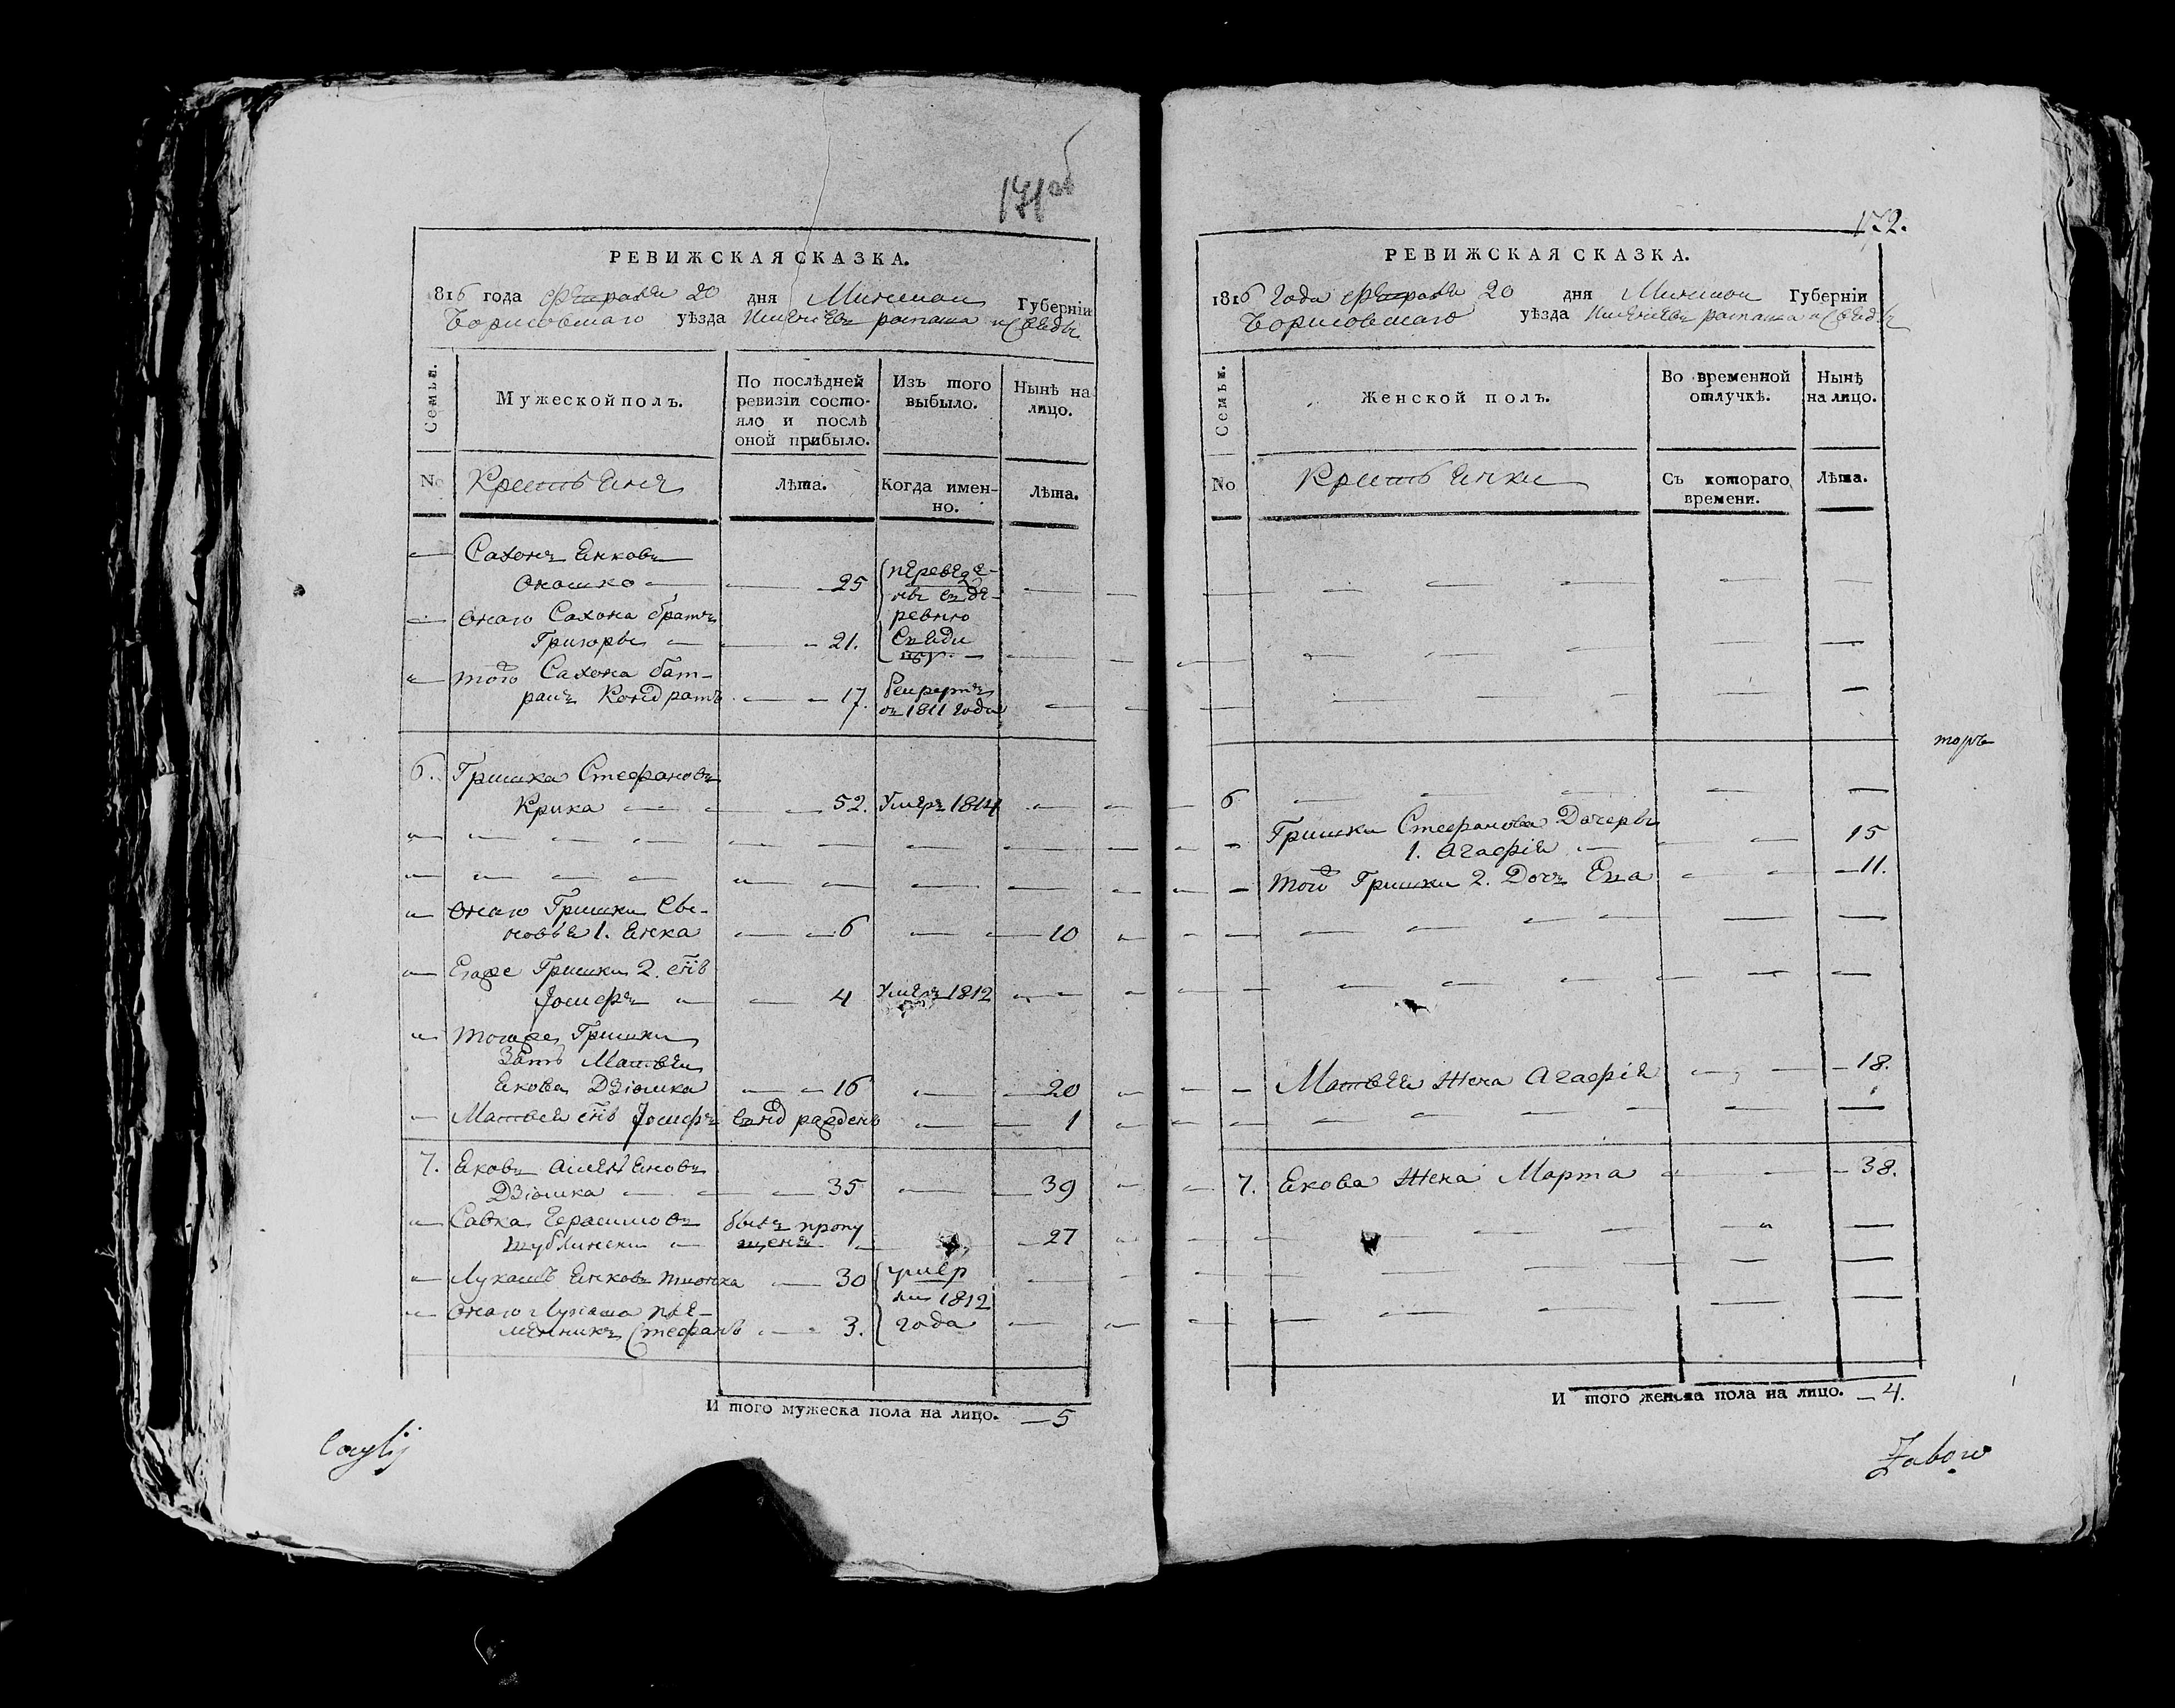 171 об
РЕВИЖСКАЯ СКАЗКА.
816 года Февраля 20 дня Минской Губерніи
Борисовскаго уѣзда
Семьи.
Мужеской полъ.
По послѣдней ревизіи состо-
яло и послѣ
оной прибыло.
Изъ того выбыло.
Нынѣ на лицо.
No
Крестьяне
Лѣта.
Когда имен-
но.
Лѣта.
Сахонъ Янковъ
Окошко 25
онаго Сахона братъ
Григоръ 21.
переведе-
ны въ де-
ревню
того Сахона бат-
ракъ Кондратъ 17.
въ 1811 года
6. Гришка Стефановъ
Крика 52. Умеръ 1814
онаго Гришки Сы-
новья 1. Янка 6 10
Егоже Гришки 2. снъ
Іосифъ 4 Умеръ 1812
тогоже Гришки
Зять Матвей
Якова Дзіошка 16 20
Матвея снъ Іосифъ рожденъ 1
7. Яковъ
Дзіошка 35 39
Савка Герасимовъ былъ пропу
щенъ 27
Лукашъ Янковъ 30
онаго Лукаша пле-
мянникъ Стефанъ 3.
умер
ли 1812
года
И того мужеска пола на лицо. 5
172.
РЕВИЖСКАЯ СКАЗКА.
1816 Года Февраля 20 дня Минской Губерніи
Борисовскаго уѣзда
Семьи.
Женской полъ.
Во временной
отлучкѣ.
Нынѣ
на лицо.
No
Крестьянки
Съ котораго
времени.
Лѣта.
6
Гришки Стефанова Дочеръ
1. Агафія 15
того Гришки 2. Дочъ Ева 11.
Матвея Жена Агафія 18.
7. Якова Жена Марта 38.
И того женска пола на лицо. 4.
Zabow